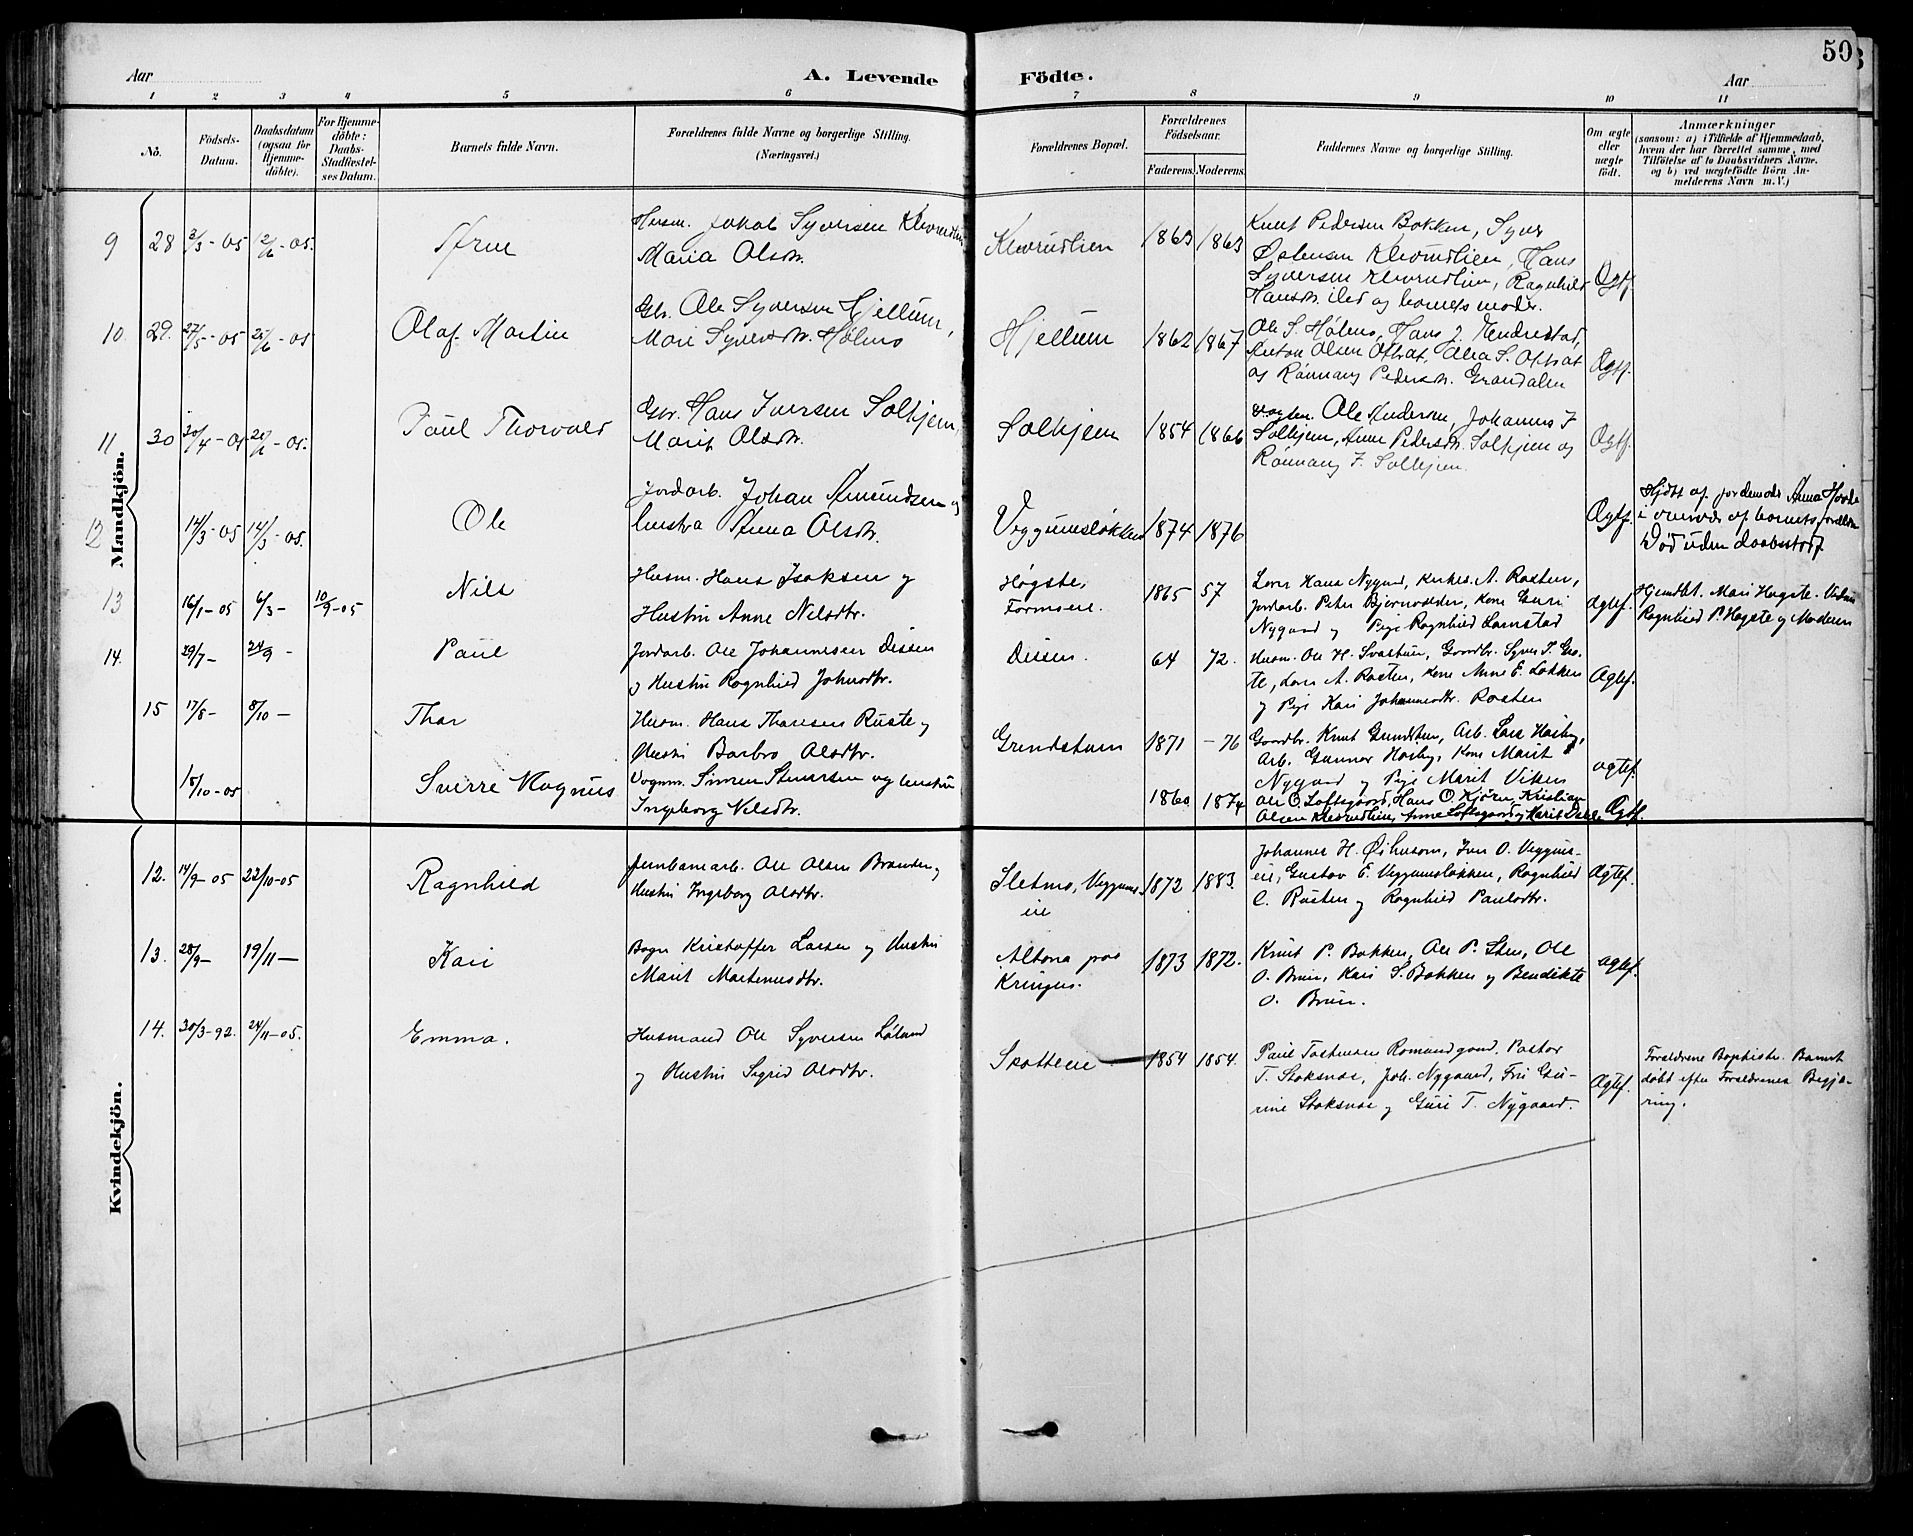 50
Aar
A. Levende
Födte.
Aar
1 2 3 4 5 6 7 8 9 10 11
No.
Födsels-
Datum.
Daabsdatum
(ogsaa for
Hjemme-
döbte).
For Hjemme-
döbte:
Daabs-
Stadfæstel-
ses Datum.
Barnets fulde Navn.
Forældrenes fulde Navne og borgerlige Stilling.
(Næringsvei.)
Forældrenes Bopæl.
Forældrenes
Födselsaar.
Faderens. Moderens.
Faddernes Navne og borgerlige Stilling.
Om ægte
eller
uægte
födt.
Anmærkninger
(saasom: a) i Tilfælde af Hjemmedaab,
hvem der har forrettet samme, med
Tilföielse af to Daabsvidners Navne.
og b) ved uægtefödte Börn An-
melderens Navn m.V.)
Mandkjön.
9 28 2/3-05 12/6-05.
Husm. Jakob Syversen Klevrudlien
Maria Olsdtr.
Klevrudlien 1863 1863
Knut Pedersen Bakken, Syver
Østensen Klevrudlien, Hans
Syversen Klevrudlien, Ragnhild
Hansdtr. ibd og barnets moder.
Ægtf.
10 29. 27/5-05
Olaf Martin
Gbr. Ole Syversen Hjellum,
Mari Syversdtr. Hølmo
Hjellum 1862 1867
Ole S. Hølmo, Hans J.
Anton Olsen
og Rønnaug Pedersdtr. Grandalen
Ægtf.
11 30 30/4-05
Paul Thorvald
Gbr. Hans Iversen Solhjem,
Marit Olsdtr.
Solhjem 1854 1866
Ole Andersen, Johannes I
Solhjem, Anne Pedersdtr. Solhjem og
Rønnaug I. Solhjem.
Ægtf.
12 14/3-05 14/3-05.
Ole
Jordarb. Johan Amundsen og
hustru Anna Olsdtr.
Veggumsløkken 1874 1876
Ægtf.
Hjdbt af jordemoder Anna
i nærvær af barnets forældre
Død uden daabsstadf.
13 16/1-05 6/3- 10/9-05
Nils
Husm. Hans Isaksen og
Hustru Anne Nelsdtr.
Høgste,
Formoeie.
1865 57
Lars Hans Nygaard, A. Rosten,
Jordarb. Peter, Kone Guri
Nygaard og Pige Ragnhild
Ægtef.
Hjemdbt. Mari Høgste. Vidner
Ragnhild P. Høgste og Moderen
14. 29/7- 24/9-
Paul
Jordarb. Ole Johannesen Dissen
og Hustru Ragnhild Johnsdtr.
Dissen. 64 72.
Husm. Ole H. Svastuen, Gaardbr. Syver I. Gro-
te, Lars A. Rosten, Kone Anne E. Løkken
og Pige Kari Johannesdtr. Rosten
Ægtef.
15 17/8- 8/10-
Thor
Husm. Hans Thoresen Ruste og
Hustru Barbro Olsdtr.
Grindstuen 1871 -76
Gaardbr. Knut, Arb. Lars Høiby,
Arb. Gunnar Høiby, Kone Marit
Nygaard og Pige Marit Viken
Ægtef.
15/10-05
Sverre Magnus
Vognm. Simen Simensen og hustru
Ingeborg Nilsdtr.
1860 1874
Ole O. Loftsgaard, Hans O. Kjørn, Kristian
Olsen Klevrudlien, Anne Loftsgaard og Marit
Ægtf.
Kvindekjön.
12. 14/9-05 22/10-05
Ragnhild
Jernbanearb. Ole Olsen Brænden og
Hustru Ingeborg Olsdtr.
Sletmo, Veggums-
eie
1872 1883.
Johannes H. Øihusom, Iver O. Veggums-
eie, Gustav E. Veggumsløkken, Ragnhild
C. Rusten og Ragnhild Paulsdtr.
Ægtef.
13. 28/9- 19/11-
Kari
Kristoffer Larsen og Hustru
Marit Martenusdtr.
Altona paa
Kringen.
1873 1872.
Knut P. Bakken, Ole P. Sten, Ole
O. Brun, Kari S. Bakken og Bendikte
O. Bruun.
Ægtef.
14. 30/3-92. 24/11-05.
Emma.
Husmand Ole Syversen
og Hustru Sigrid Olsdtr.
Skotteeie 1854 1854.
Paul Tostensen Romundgaard, Pastor
T. Stoksnæs, Joh. Nygaard, Fru Gu-
rine Stoksnæs og Guri T. Nygaard.
Ægtef.
Forældrene Baptister. Barnet
døbt efter Forældrenes Begjæ-
ring.